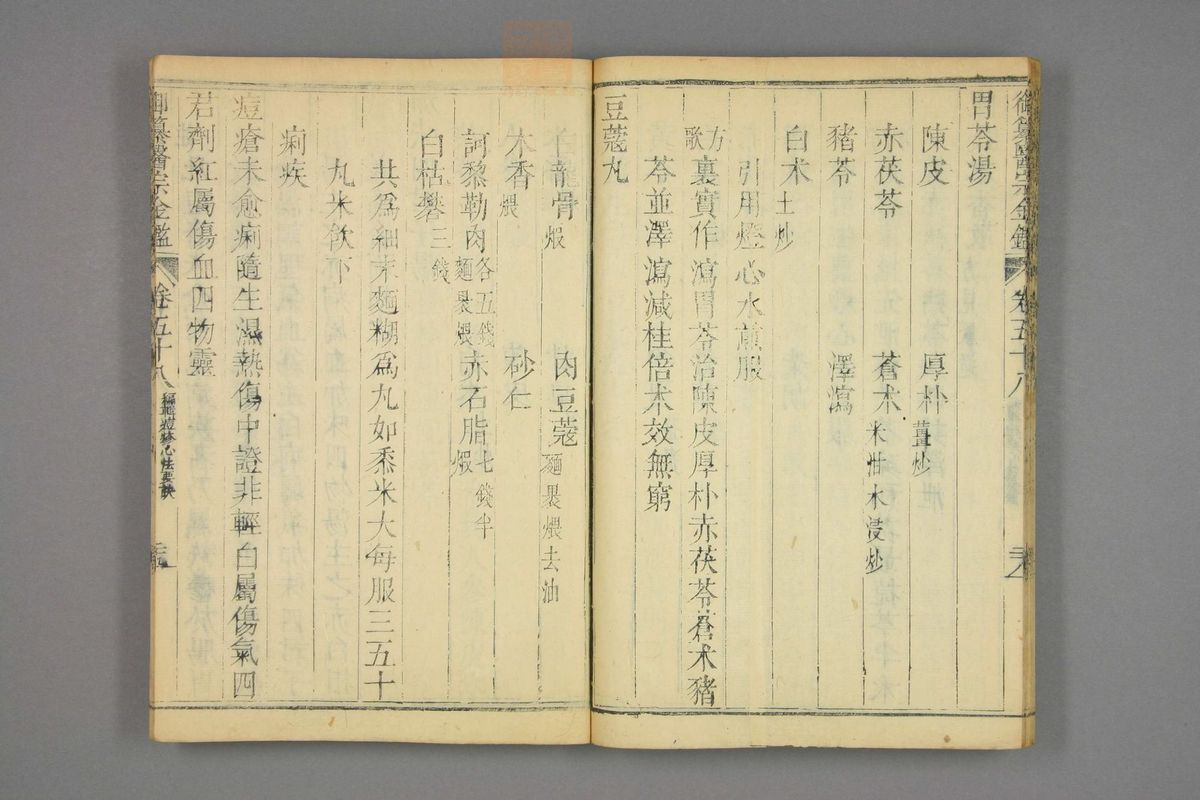 御纂醫宗金鑑 卷五十八
胃苓湯
陳皮 厚朴薑炒
赤茯苓 蒼朮米泔水浸炒
豬苓 澤瀉
白朮土炒
引用燈心水煎服
方歌 裏實作瀉胃苓治陳皮厚朴赤茯苓蒼朮豬
苓並澤瀉減桂倍朮效無窮
豆蔻丸
白龍骨煅 肉豆蔻麵裹煨去油
木香煨 砂仁
訶黎勒肉各五錢麵裹煨 赤石脂七錢半煅
白枯礬三錢
共爲細末麵糊爲丸如黍米大每服三五十
丸米飲下
痢疾
痘瘡未愈痢隨生濕熱傷中證非輕白屬傷氣四
君劑紅屬傷血四物靈
御纂醫宗金鑑 卷五十八 編輯痘疹心法要訣